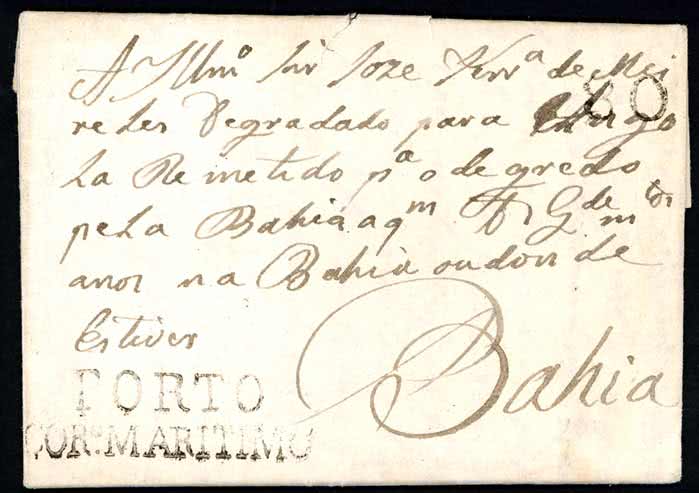 A Illmº Snr Joze Ferrª de Mei
80
relles Degradado para Ango
la Remetido pª o degredo
pela Bahia a qm D G de ms
anos na Bahia ou don de
Estiver
Bahia
PORTO
CORº. MARITIMO